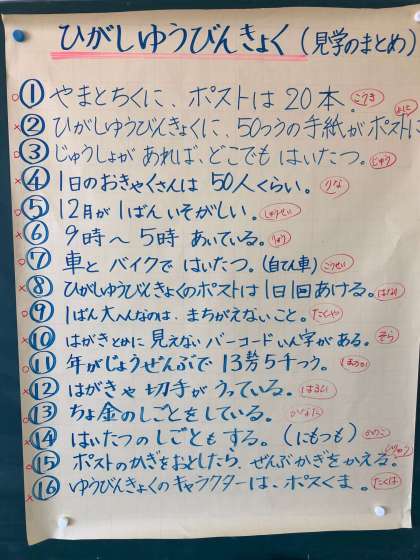 ひがしゆうびんきょく (見学のまとめ)
○① やまとちくに、ポストは20本。こうき
×② ひがしゆうびんきょくに、50つうの手紙がポストに よしに
○③ じゅうしょがあれば、どこでもはいたつ。じゅう
×④ 1日のおきゃくさんは50人くらい。りな
○⑤ 12月が1ばんいそがしい。しゅうせい
×⑥ 9時〜5時あいている。りゅう
○⑦ 車とバイクではいたつ。(自てん車) こうせい
×⑧ ひがしゆうびんきょくのポストは1日1回あける。はな
○⑨ 1ばん大へんなのは、まちがえないこと。たくや
×⑩ はがきとかに見えないバーコードいん字がある。そら
○⑪ 年がじょうぜんぶで13万5千つう。
×⑫ はがきや切手がうっている。はるい
○⑬ ちょ金のしごとをしている。かなた
×⑭ はいたつのしごともする。(にもつも) かのこ
○⑮ ポストのかぎをおとしたら、ぜんぶかぎをかえる。じゅう
×⑯ ゆうびんきょくのキャラクターは、ポスくま。たくは